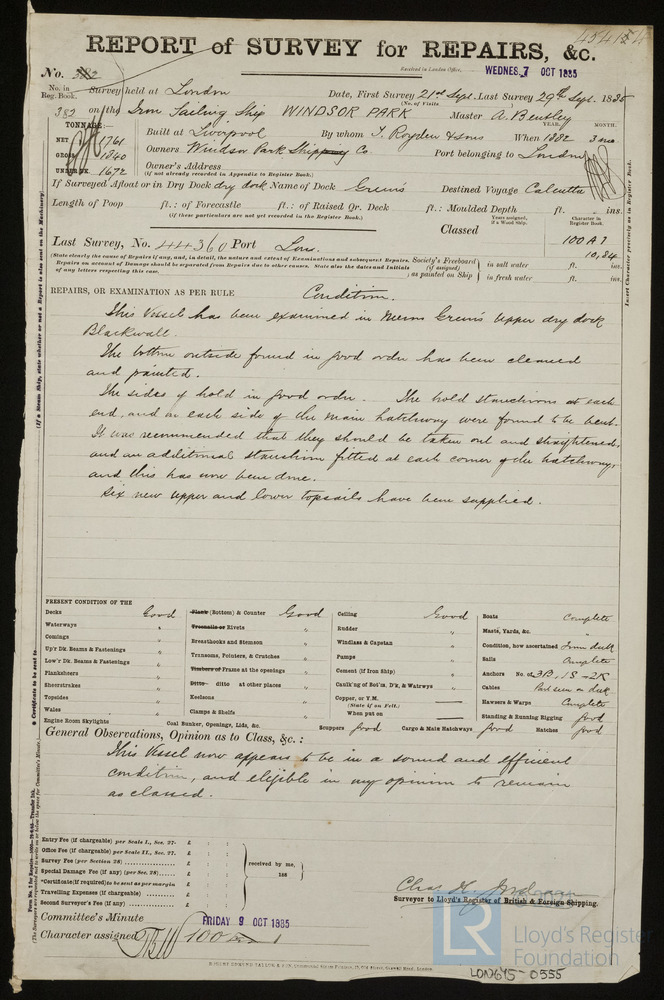 45415
REPORT of SURVEY for REPAIRS, &c.
No. 382
Received in London Office, WEDNES. 7 OCT 1885
No. in Reg. Book. Survey held at London Date, First Survey 21st Sept. Last Survey 29th Sept. 1885
(No. of Visits )
382 on the Iron Sailing Ship WINDSOR PARK Master A. Bentley
TONNAGE:—
NET 1761
GROSS 1840
UNDER DK. 1672
YEAR. MONTH.
Built at Liverpool By whom T. Royden & Sons When 1882 3 mo
Owners Windsor Park Shipping Co. Port belonging to London
Owner's Address
(if not already recorded in Appendix to Register Book.)
If Surveyed Afloat or in Dry Dock dry dock Name of Dock Green's Destined Voyage Calcutta
Length of Poop ft.: of Forecastle ft.: of Raised Qr. Deck ft.: Moulded Depth ft. ins.
(if these particulars are not yet recorded in the Register Book.)
Years assigned, if a Wood Ship.
Character in Register Book.
Classed
100 A 1
10,84
Last Survey, No. 44360 Port Lon.
(State clearly the cause of Repairs if any, and, in detail, the nature and extent of Examinations and subsequent Repairs.
Repairs on account of Damage should be separated from Repairs due to other causes. State also the dates and Initials
of any letters respecting this case.
Society's Freeboard (if assigned) as painted on Ship
in salt water ft. ins.
in fresh water ft. ins.
REPAIRS, OR EXAMINATION AS PER RULE
Condition.
This Vessel has been examined in Messrs Green's Upper dry dock
Blackwall.
The bottom outside found in good order has been cleaned
and painted.
The sides of hold in good order. The hold stanchions at each
end, and on each side of the main hatchway were found to be bent.
It was recommended that they should be taken out and straightened,
and an additional stanchion fitted at each corner of the hatchway,
and this has now been done.
Six new upper and lower topsails have been supplied.
PRESENT CONDITION OF THE
Decks Good
Waterways "
Comings "
Up'r Dk. Beams & Fastenings "
Low'r Dk. Beams & Fastenings "
Planksheers "
Sheerstrakes "
Topsides "
Wales "
Engine Room Skylights
Plank (Bottom) & Counter Good
Treenails or Rivets "
Breasthooks and Stemson "
Transoms, Pointers, & Crutches "
Timbers or Frame at the openings "
Ditto ditto at other places "
Keelsons "
Clamps & Shelfs "
Coal Bunker, Openings, Lids, &c.
Ceiling Good
Rudder "
Windlass & Capstan "
Pumps "
Cement (if Iron Ship) "
Caulk'ng of Bot'm, D'k, & Watrwys "
Copper, or Y.M.
(State if on Felt.)
When put on
Scuppers good Cargo & Main Hatchways good Hatches good
Boats Complete
Masts, Yards, &c. "
Condition, how ascertained From deck
Sails Complete
Anchors No. of 3B, 1S - 2K
Cables Part seen on deck
Hawsers & Warps Complete
Standing & Running Rigging good
General Observations, Opinion as to Class, &c. :
This Vessel now appears to be in a sound and efficient
condition, and eligible in my opinion to remain
as classed.
Entry Fee (if chargeable) per Scale I., Sec. 27. £ : :
Office Fee (if chargeable) per Scale II., Sec. 27. £ : :
Survey Fee (per Section 28) £ : :
Special Damage Fee (if any) (per Sec. 28) £ : :
*Certificate (if required) to sent as per margin
Travelling Expenses (if chargeable) £ : :
Second Surveyor's Fee (if any) £ : :
received by me,
188
Surveyor to Lloyd's Register of British & Foreign Shipping.
Committee's Minute FRIDAY 9 OCT 1885
Character assigned 100 A 1
Lloyd's Register
Foundation
LR
LON645-0355